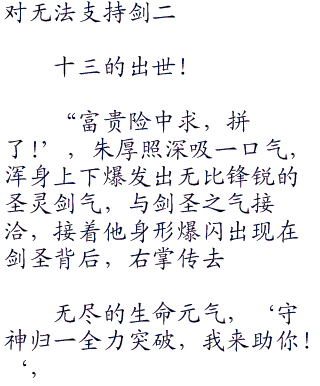 对无法支持剑二
十三的出世！
“富贵险中求，拼
了！’，朱厚照深吸一口气，
浑身上下爆发出无比锋锐的
圣灵剑气，与剑圣之气接
洽，接着他身形爆闪出现在
剑圣背后，右掌传去
无尽的生命元气，‘守
神归一全力突破，我来助你！
‘，